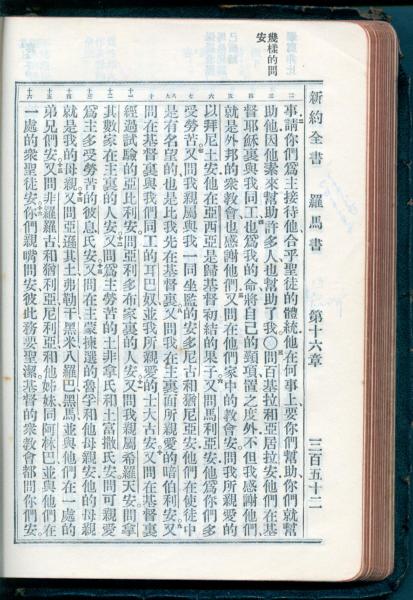 新約全書　羅馬書　第十六章　三百五十二
幾樣的問
安
事請你們爲主接待他合乎聖徒的體統他在何事上要你們幫助你們就幫
助他因他素來幫助許多人也幫助了我〇問百基拉和亞居拉安他們在基
督耶穌裏與我同工也爲我的命將自己的頸項置之度外不但我感謝他們
就是外邦的衆教會也感謝他們又問在他們家中的教會安問我所親愛的
以拜尼土安他在亞西亞是歸基督初結的果子又問馬利亞安他爲你們多
受勞苦又問我親屬與我一同坐監的安多尼古和猶尼亞安他們在使徒中
是有名望的也是比我先在基督裏又問我在主裏面所親愛的暗伯利安又
問在基督裏與我們同工的耳巴奴並我所親愛的士大古安又問在基督裏
經過試驗的亞比利安問亞利多布家裏的人安又問我親屬希羅天安問拿
其數家在主裏的人安又問爲主勞苦的土非拿氏和土富撒氏安問可親愛
爲主多受勞苦的彼息氏安又問在主蒙揀選的魯孚和他母親安他的母親
就是我的母親又問亞遜其土弗勒干黑米八羅巴黑馬並與他們在一處的
弟兄們安又問非羅羅古和猶利亞尼利亞和他姊妹同阿林巴並與他們在
一處的衆聖徒安你們親嘴問安彼此務要聖潔基督的衆教會都問你們安